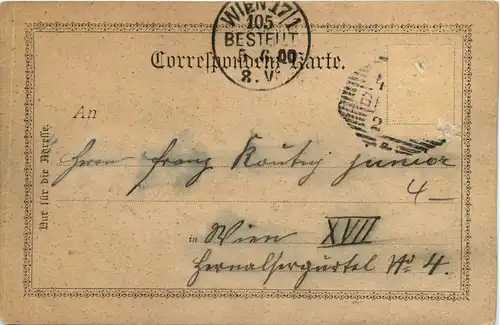 WIEN 17/1
105
BESTELLT
5. 4. 00
8. V.
Correspondenz-Karte.
4
2
An
Nur für die Adresse.
Herrn Franz junior
4 —
in Wien XVII
Hernalsergürtel No 4.